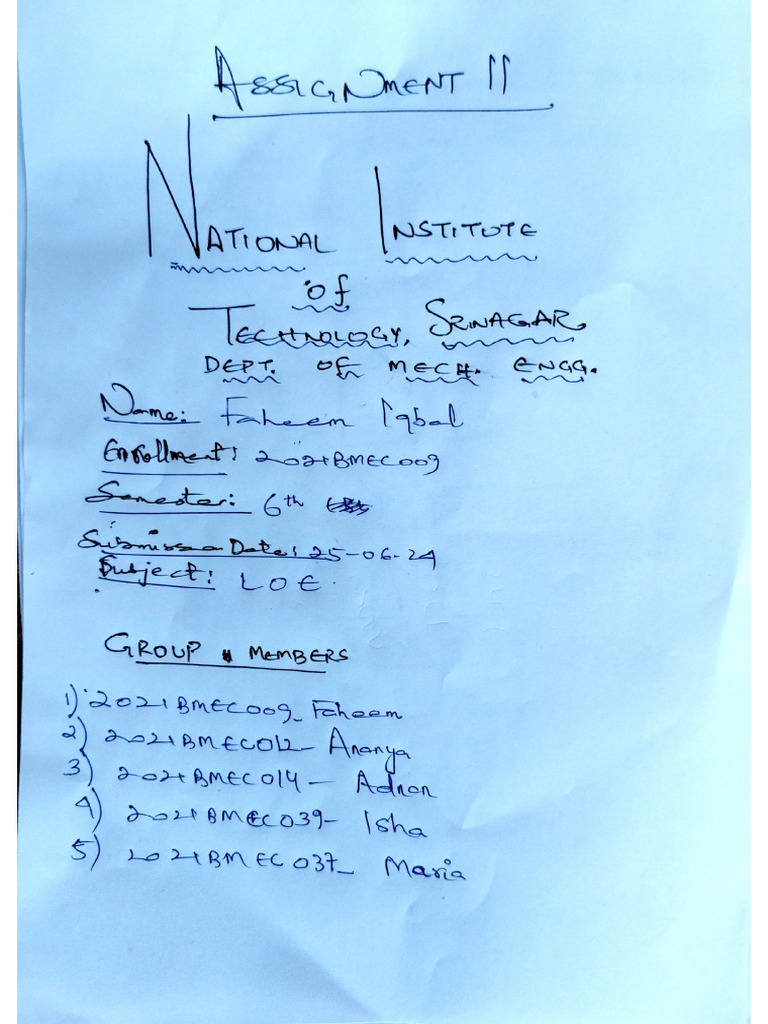 ASSIGNMENT II
NATIONAL INSTITUTE
of
TECHNOLOGY, SRINAGAR
DEPT. OF MECH. ENGG.
Name: Faheem Iqbal
Enrollment: 2021BMEC009
Semester: 6th
Submission Date: 25-06-24
Subject: LOE
GROUP MEMBERS
1) 2021BMEC009_ Faheem
2) 2021BMEC012- Ananya
3) 2021BMEC014 - Adnan
4) 2021BMEC039- Isha
5) 2021BMEC037_ Maria